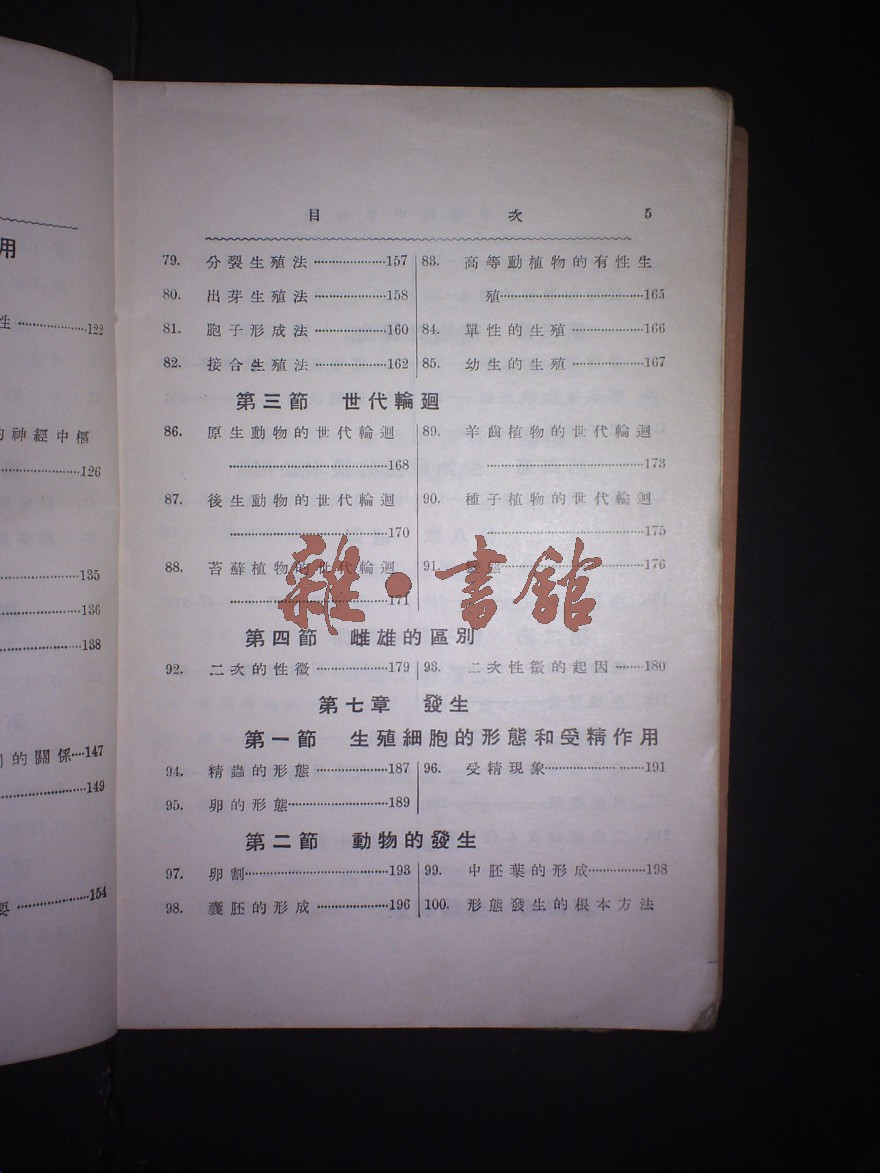 用
生…………122
的神經中樞
…………126
…………135
…………136
…………138
的關係…147
…………149
要…………154
目 次 5
79. 分裂生殖法…………157
80. 出芽生殖法…………158
81. 胞子形成法…………160
82. 接合生殖法…………162
83. 高等動植物的有性生
殖…………165
84. 單性的生殖…………166
85. 幼生的生殖…………167
第三節 世代輪迴
86. 原生動物的世代輪迴
…………168
87. 後生動物的世代輪迴
…………170
88. 苔蘚植物的世代輪迴
…………171
89. 羊齒植物的世代輪迴
…………173
90. 種子植物的世代輪迴
…………175
91. 變態…………176
雜·書館
第四節 雌雄的區別
92. 二次的性徵…………179
93. 二次性徵的起因……180
第七章 發生
第一節 生殖細胞的形態和受精作用
94. 精蟲的形態…………187
95. 卵的形態…………189
96. 受精現象…………191
第二節 動物的發生
97. 卵割…………193
98. 囊胚的形成…………196
99. 中胚葉的形成…………198
100. 形態發生的根本方法